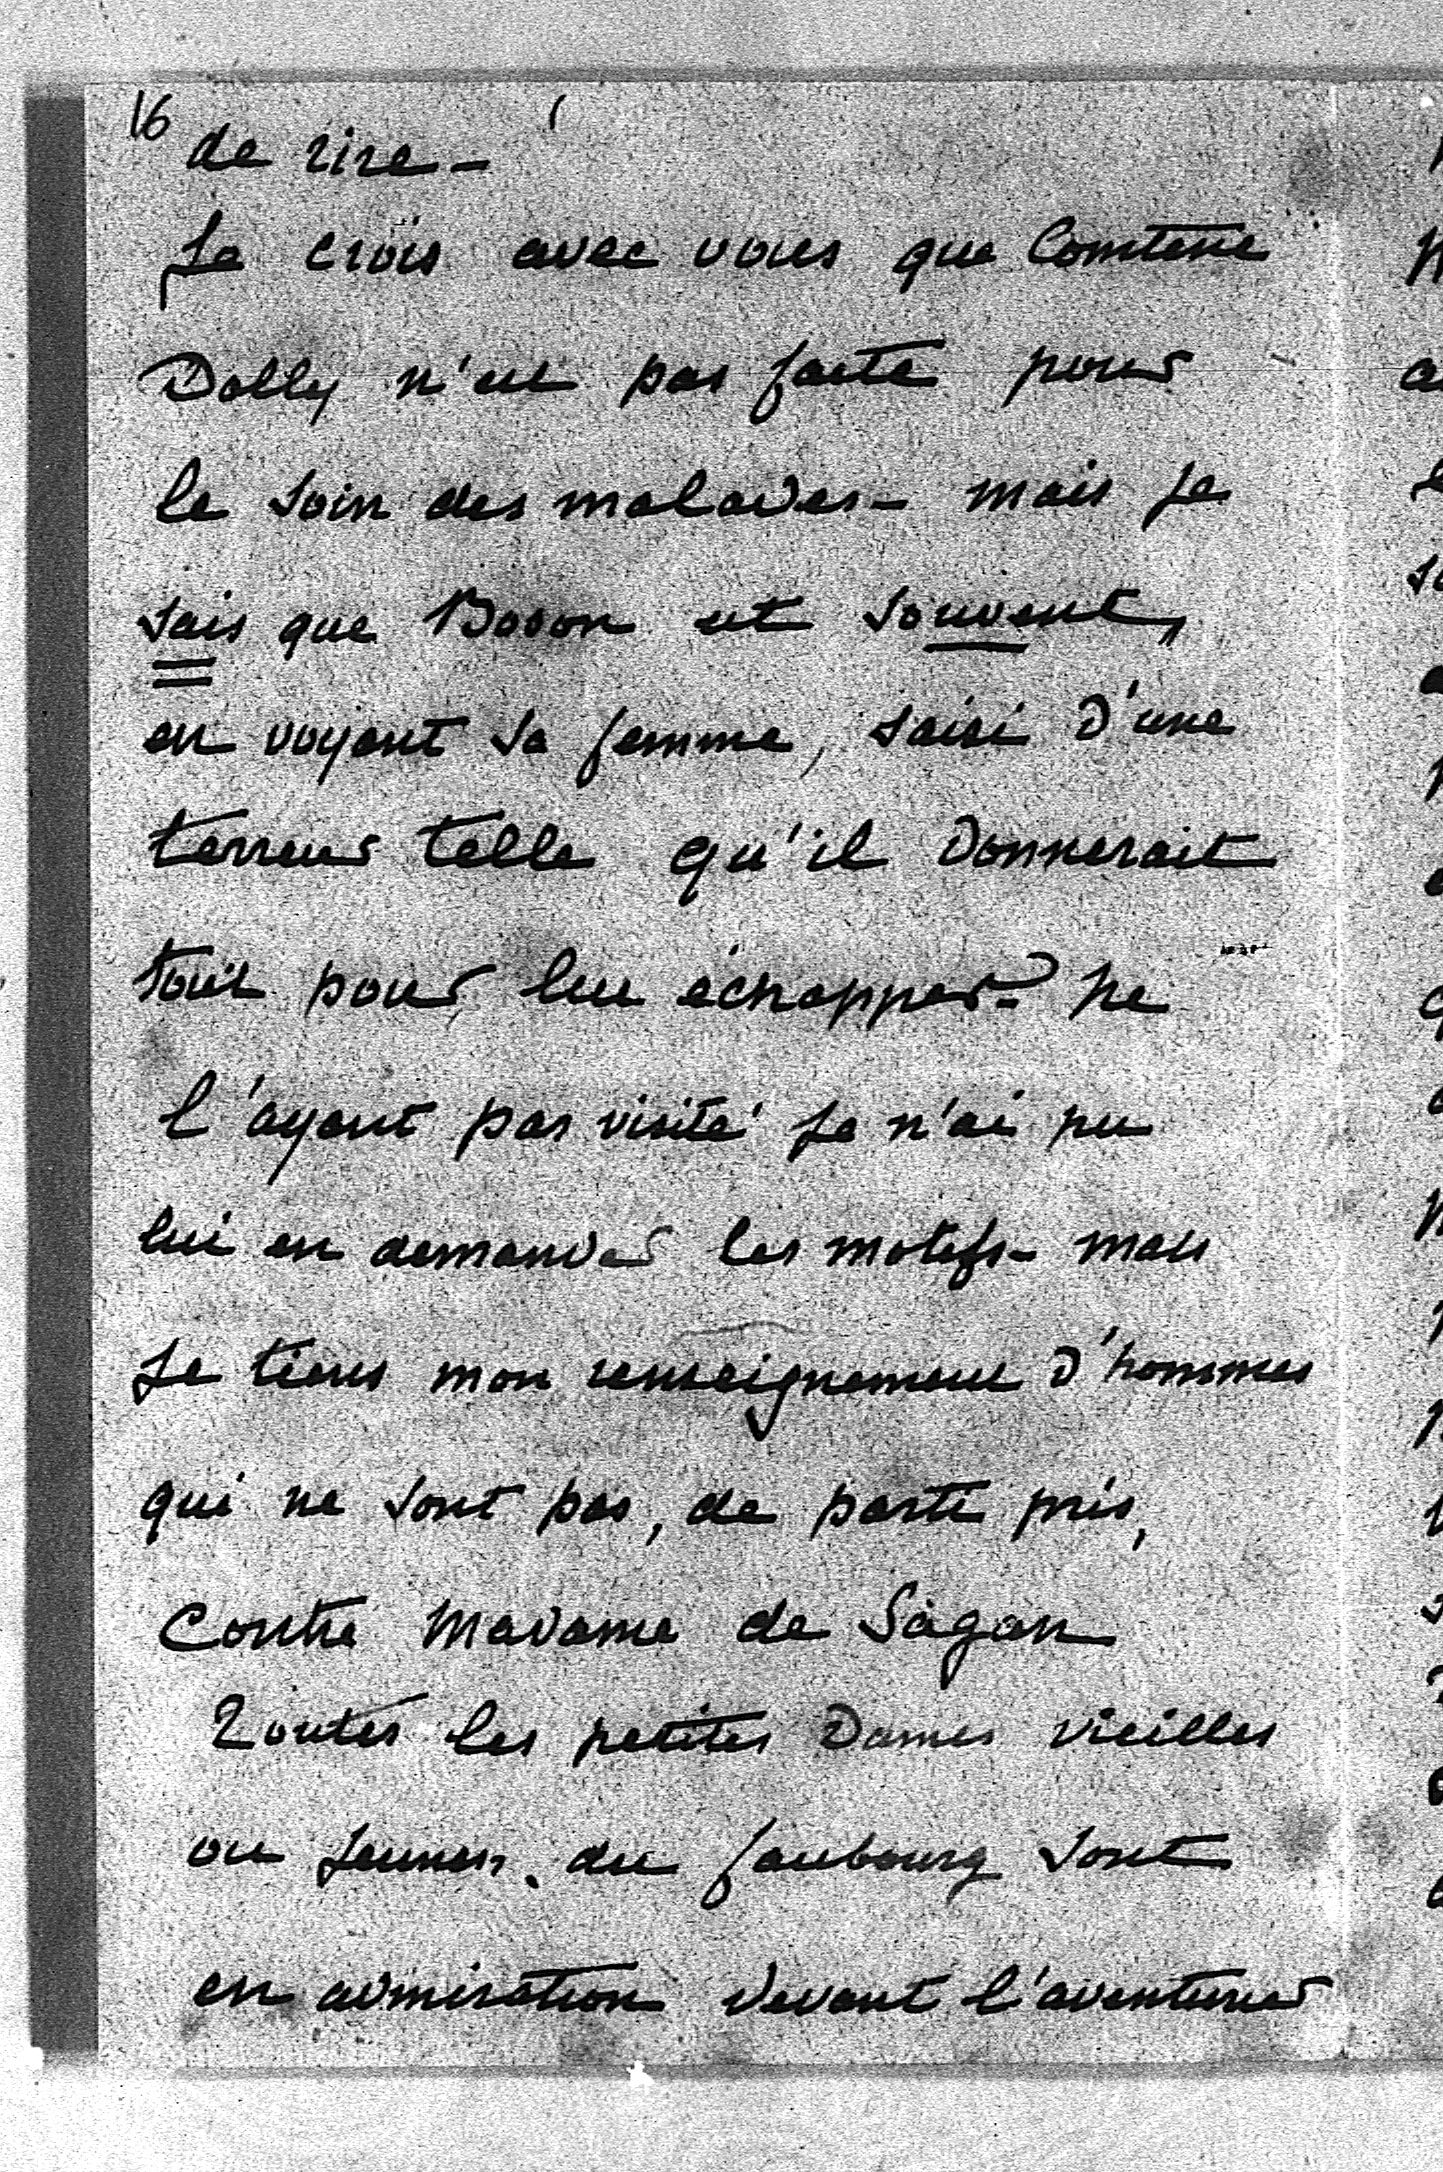 16
de rire -
Je crois avec vous que Comtesse
Dolly n'est pas faite pour
le soin des malades - mais je
sais que Boson est souvent,
en voyant sa femme, saisi d'une
terreur telle qu'il donnerait
tout pour lui échapper - Ne
l'ayant pas visité je n'ai pu
lui en demander les motifs - mais
je tiens mon renseignement d'hommes
qui ne sont pas, de parti pris,
contre Madame de Sagan
Toutes les petites Dames vieilles
ou jeunes, du faubourg sont
en admiration devant l'aventurier